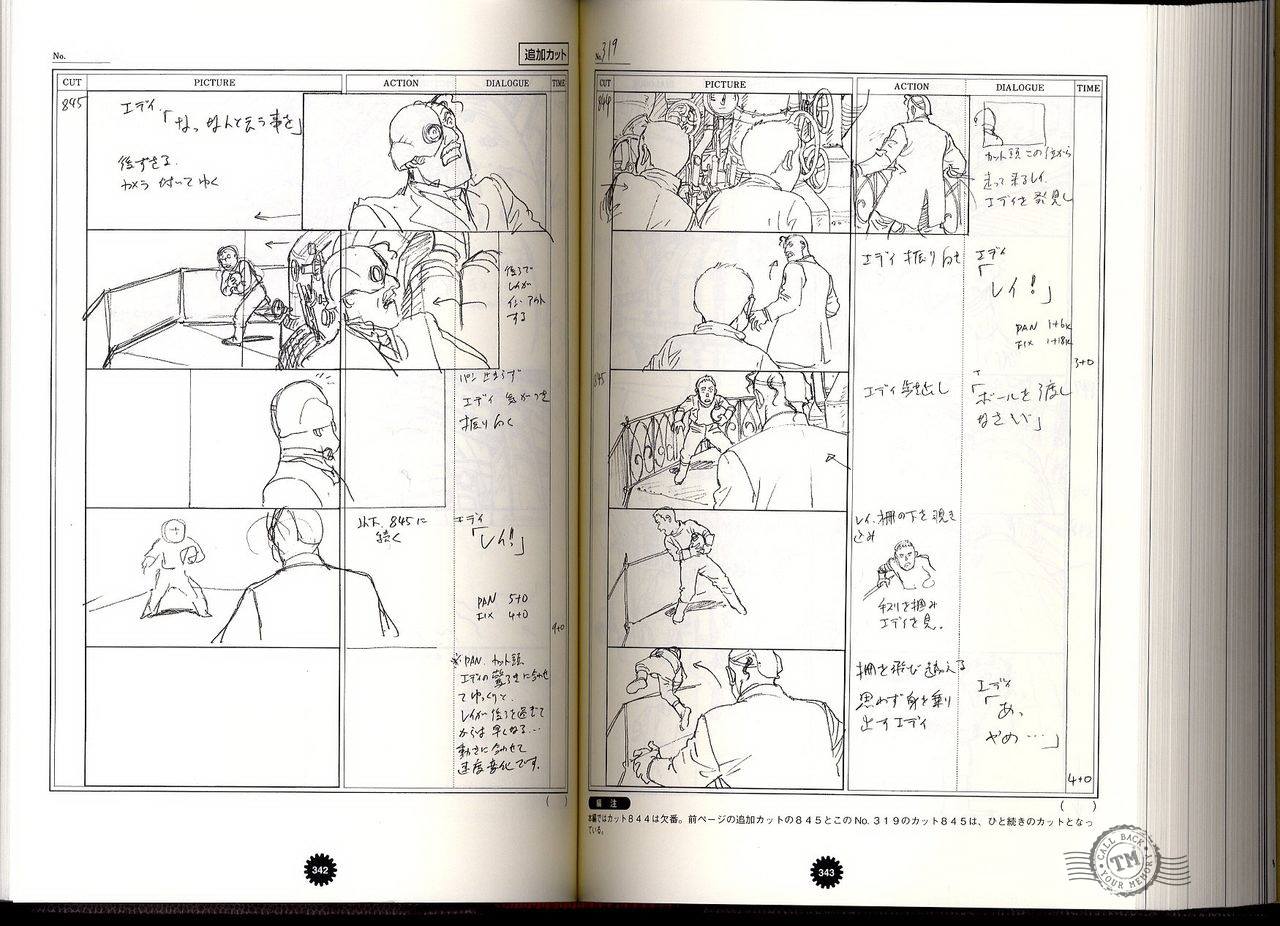 No.
追加カット
CUT PICTURE ACTION DIALOGUE TIME
845
エディ「なっ なんと云う事を」
後ずさる.
カメラ 付いて ゆく
後ろで
レイが
イン・アウト
する
パン 止まらず
エディ 気がつき
振り向く
以下、845に
続く
エディ
「レイ!」
PAN 5+0
FIX 4+0
9+0
※PAN. カット頭
エディの
てゆっくりと.
レイが 後ろを過ぎて
からは 早くなる…
動きに合わせて
速度変化です.
( )
342
No. 319
CUT PICTURE ACTION DIALOGUE TIME
844
カット頭 この位から
走って来るレイ.
エディを発見し
エディ 振り向き
エディ
「レイ!」
PAN 1+6k
FIX 1+18k
3+0
845
エディ
「ボールを 渡し
なさい」
レイ、柵の下を覗き
込み
手スリを掴み
エディを見.
柵を飛び越える
思わず身を乗り
出すエディ
エディ
「あ、
やめ…」
4+0
( )
備 注
本編ではカット844は欠番。前ページの追加カットの845とこのNo. 319のカット845は、ひと続きのカットとなっ
ている。
343
CALL BACK
TM
YOUR MEMORY